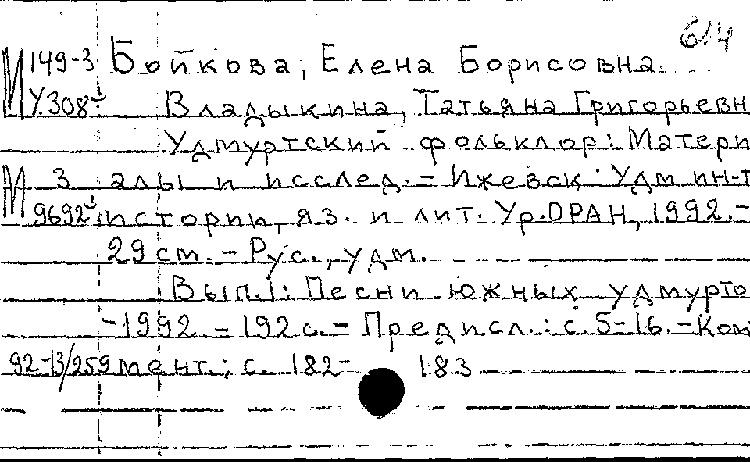 614
М 149-3 Бойкова, Елена Борисовна.
У.308 Владыкина, Татьяна Григорьевн
Удмуртский фольклор: Матери
М 3 алы и исслед. - Ижевск: Удм ин-т
9692 истории, яз. и лит. Ур.ОРАН, 1992. -
29 см. - Рус., удм.
Вып.1: Песни южных удмурто
-1992. - 192 с. - Предисл.: с. 5-16. - Ком
92-13/259 мент.: с. 182- 183